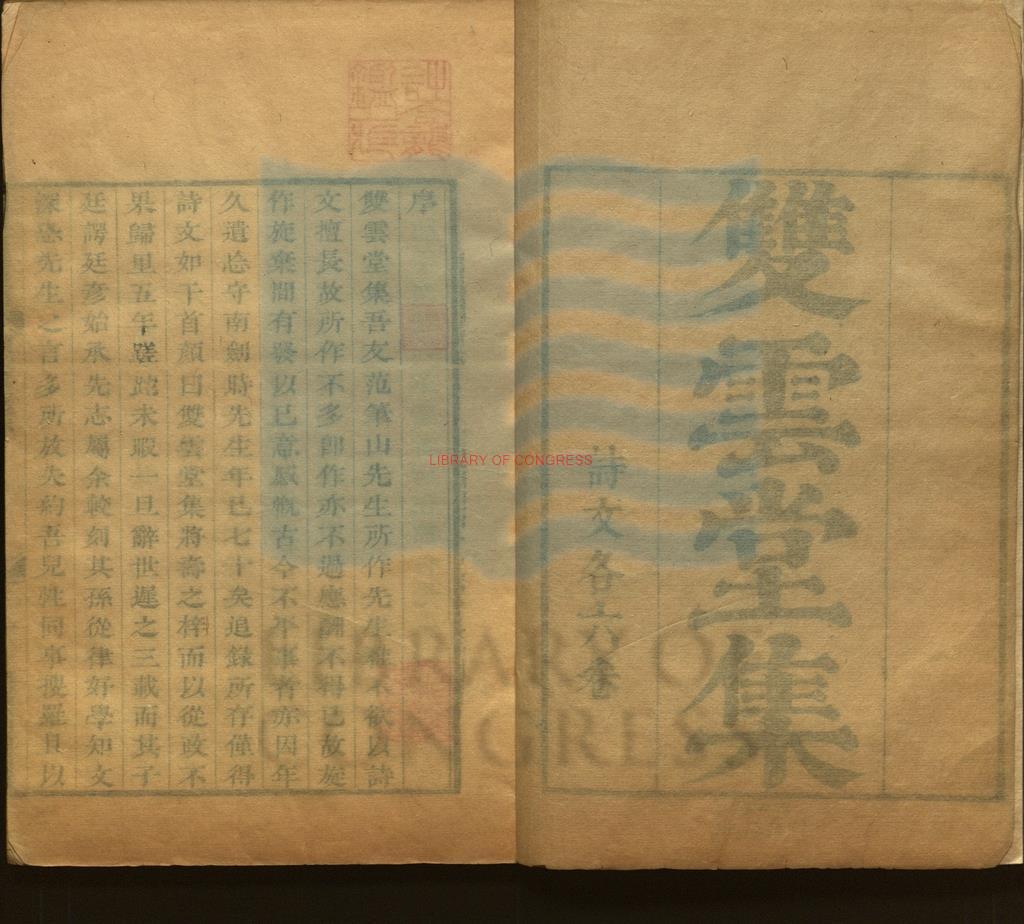 雙雲堂集
詩文各六卷
序
雙雲堂集吾友范筆山先生所作先生雅不欲以詩
文擅長故所作不多即作亦不過應酬不得已故旋
作旋棄間有發以己意感慨古今不平事者亦因年
久遺忘守南劍時先生年已七十矣追錄所存僅得
詩文如干首顏曰雙雲堂集將壽之梓而以從政不
果歸里五年蹉跎未暇一旦辭世遲之三載而其子
廷諤廷彥始承先志屬余較刻其孫從律好學知文
深恐先生之言多所放失約吾兒 同事搜羅 以
LIBRARY OF CONGRESS
LIBRARY OF
CONGRESS